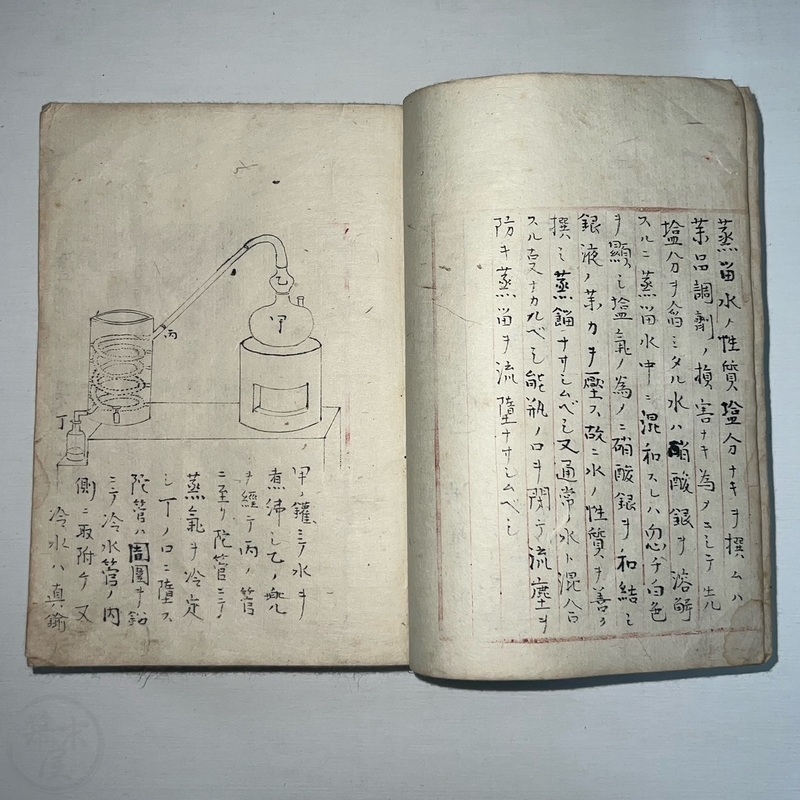 蒸畄水ノ性質塩分ナキヲ撰ムハ
薬品調劑ノ損害ナキ為タニシテ
塩分ヲ含ミタル水ハ硝酸銀ヲ溶解
スルニ蒸畄水中ニ混和スレハ忽チ白色
ヲ顯シ塩氣ノ為ノニ硝酸銀ヲ和結シ
銀液ノ薬力ヲ壓ス故ニ水ノ性質ヲ善ク
撰ミ蒸餾ナサシムベシ又通常ノ水ト混合
スル ナカルベシ能瓶ノ口ヲ閉テ流塵ヲ
防キ蒸畄ヲ流墮ナサシムベシ
乙
甲
丙
丁
甲ノ鑵ニテ水ヲ
煮沸シ乙ノ
ヲ經テ丙ノ管
ニ至リ陀管ニテ
蒸氣ヲ冷定
シ丁ノ口ニ墮ス
陀管ハ周圍ヲ鉛
ニテ冷水管ノ内
側ニ取附ケ又
冷水ハ真鍮